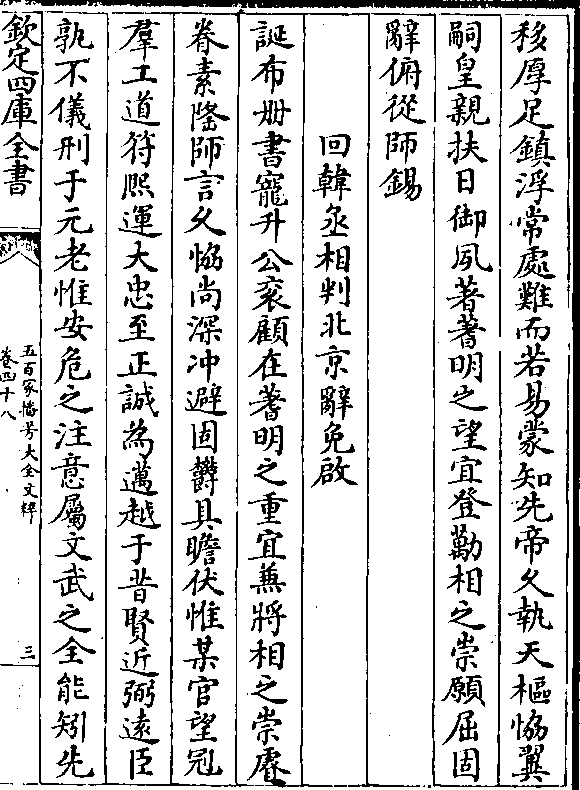 移厚足鎮浮常處難而若易蒙知先帝久執天樞恊翼
嗣皇親扶日御夙著蓍明之望宜登勱相之崇願屈固
辭俯從師錫
回韓丞相判北京辭免啟
誕布冊書寵升公衮顧在蓍明之重宜兼將相之崇睿
眷素隆師言久恊尚深冲避固欝具瞻伏惟某官望冠
羣工道符熈運大忠至正誠為邁越于昔賢近弼遠臣
孰不儀刑于元老惟安危之注意屬文武之全能矧先
欽定四庫全書
五百家播芳大全文粹
卷四十八
三